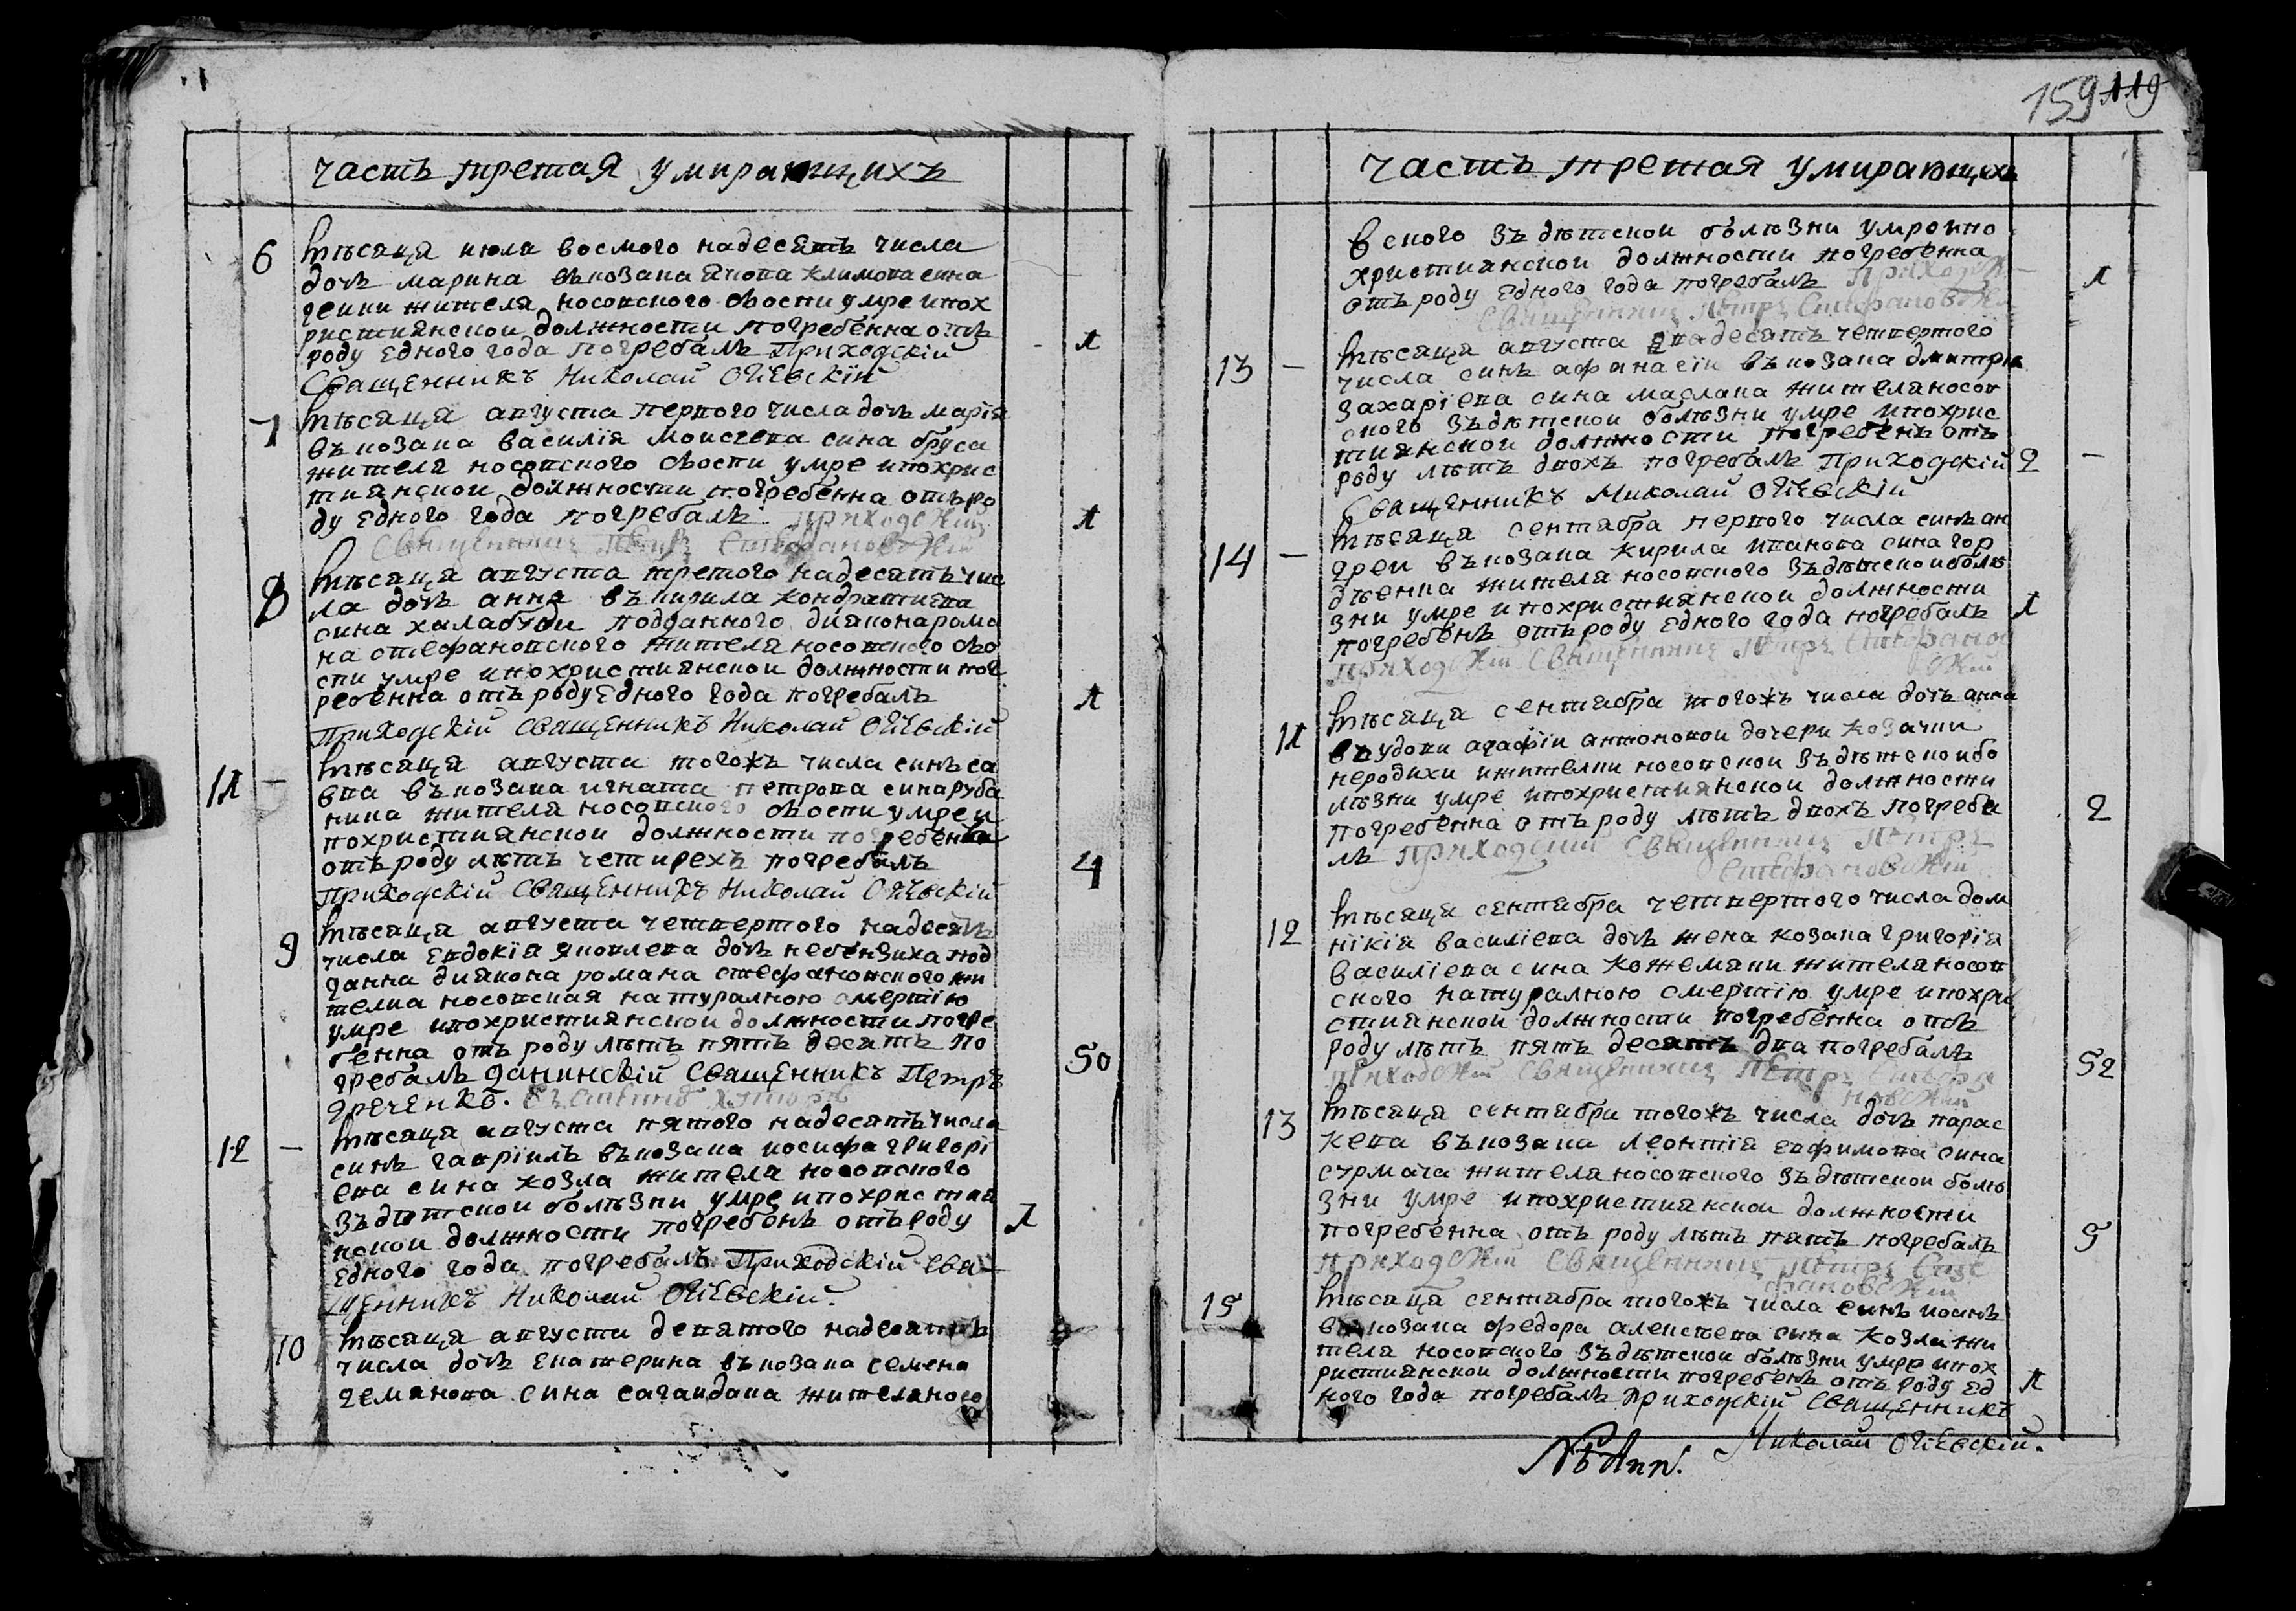 159 119
часть третая умирающихъ
6 мѣсяца июля восмого надесять числа
дочь марина въ козака якова климова сина
жителя носовского ѡспи умре и по х
ристиянской должности погребенна отъ
роду едного года погребалъ Приходскій 1
Священникъ Николай Огіевскій
7 мѣсяца августа первого числа дочь марія
въ козака василія моисеева сина бруса
жителя носовского ѡспи умре и по хрис
тиянской должности погребенна отъ ро
ду едного года погребалъ Приходскій 1
Священникъ Петръ Стефановскій
8 мѣсяца августа третого надесять чис
ла дочь анна въ кирила кондратиева
сина халабуди подданного дияконарома
на стефановского жителя носовского ѡ
спи умре и по християнской должности пог
ребенна отъ роду едного года погребалъ 1
Приходскій Священникъ Николай Огіевскій
11 — мѣсяца августа того жъ числа синъ са
вка въ козака игната петрова сина руба
ника жителя носовского ѡспи умре и
по християнской должности погребенъ
отъ роду лѣтъ четирехъ погребалъ 4
Приходскій Священникъ Николай Огіевскій
9 мѣсяца августа четвертого надесять
числа евдокія яковлева дочь небензиха под
данна дияkona романа стефановского жи
телка носовская натуралною смертію
умре и по християнской должности погре
бенна отъ роду лѣтъ пять десятъ по 50
гребалъ данинскій Священникъ Петръ
Яреченко.
12 — мѣсяца августа пятого надесять числа
синъ гавріилъ въ козака иосифа григорі
ева сина козла жителя носовского
зъ дѣтской болѣзни умре и по христия
нской должности погребенъ отъ роду 1
едного года погребалъ Приходскій Свя
щенникъ Николай Огіевскій.
10 мѣсяца августа девятого надесять
числа дочь екатерина въ козака семена
демянова сина сагайдака жителя носо
часть третая умирающихъ
вского зъ дѣтской болѣзни умре и по
християнской должности погребенна
отъ роду едного года погребалъ Приходскій 1
Священникъ Петръ Стефановскій
13 — мѣсяца августа двадесять четвертого
числа синъ афанасій въ козака дмитрія
захаріева сина маслака жителя носов
ского зъ дѣтской болѣзни умре и по хрис
тиянской должности погребенъ отъ
роду лѣтъ двохъ погребалъ Приходскій 2 —
Священникъ Николай Огіевскій
14 — мѣсяца сентября первого числа синъ ан
дрей въ козака кирила иванова сина гор
дѣенка жителя носовского зъ дѣтской болѣ
зни умре и по християнской должности 1
погребенъ отъ роду едного года погребалъ
Приходскій Священникъ Петръ Стефанов
скій
11 мѣсяца сентября того жъ числа дочь анна
въ удови агафіи антоновой дочери козачки
неродихи жителки носовской зъ дѣтской бо
лѣзни умре и по християнской должности
погребенна отъ роду лѣтъ двохъ погреба 2
лъ Приходскій Священникъ Петръ
Стефановскій
12 мѣсяца сентября четвертого числа дом
нікія василіева дочь жена козака григорія
василіева сина кожемяки жителя носов
ского натуралною смертію умре и по хри
стиянской должности погребенна отъ
роду лѣтъ пять десятъ два погребалъ 52
Приходскій Священникъ Петръ Стефа
новскій
13 мѣсяца сентября того жъ числа дочь парас
кева въ козака леонтія евфимова сина
сурмача жителя носовского зъ дѣтской болѣ
зни умре и по християнской должности
погребенна отъ роду лѣтъ пять погребалъ 5
Приходскій Священникъ Петръ Сте
фановскій
15 мѣсяца сентября того жъ числа синъ иоанъ
въ козака федора алексѣева сина козла жи
теля носовского зъ дѣтской болѣзни умре и по х
ристиянской должности погребенъ отъ роду ед 1
ного года погребалъ Приходскій Священникъ
Николай Огіевскій.